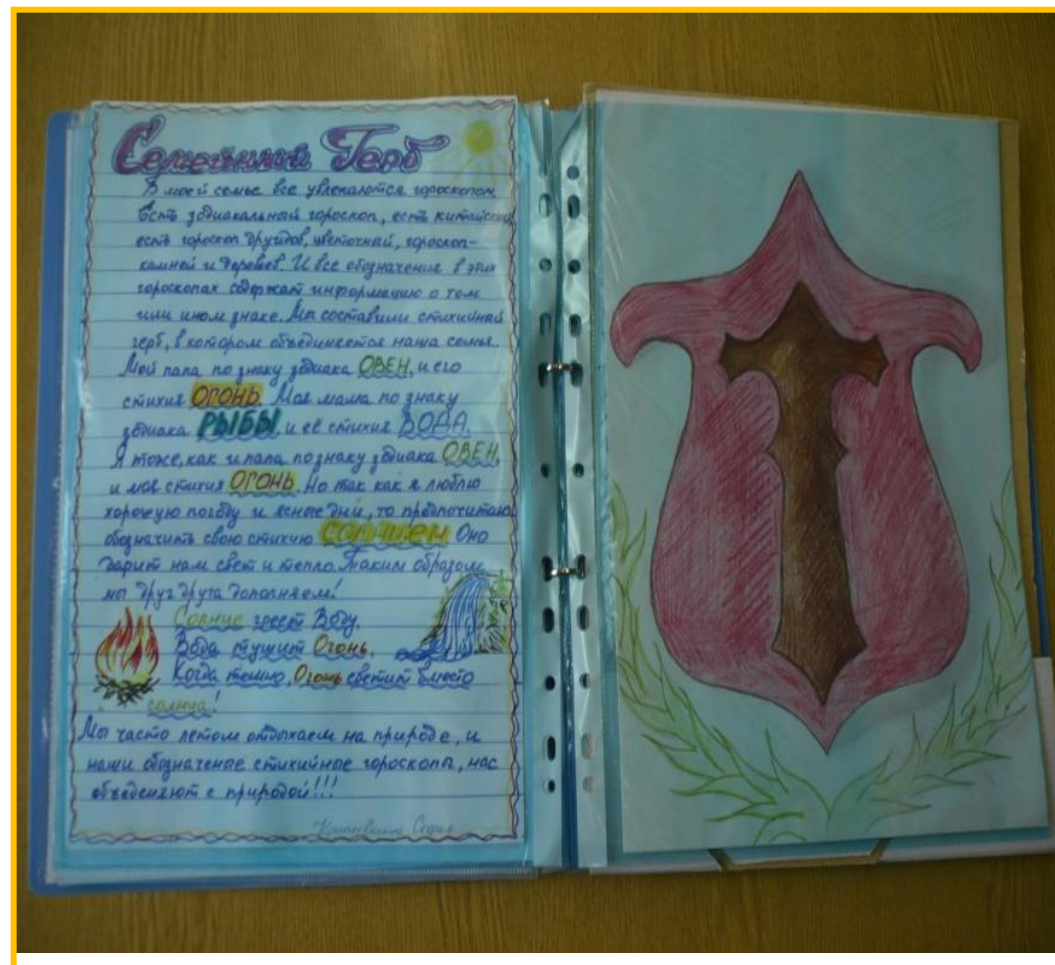 Семейный Герб
В моей семье все увлекаются гороскопом.
Есть зодиакальный гороскоп, есть китайский,
есть гороскоп друидов, цветочный, гороскоп-
камней и деревьев. И все обозначение в этих
гороскопах содержат информацию о том
или ином знаке. Мы составили стихийный
герб, в котором объединяется наша семья.
Мой папа по знаку зодиака ОВЕН, и его
стихия ОГОНЬ. Моя мама по знаку
зодиака РЫБЫ, и её стихия ВОДА.
Я тоже, как и папа по знаку зодиака ОВЕН,
и моя стихия ОГОНЬ. Но так как я люблю
хорошую погоду и ясные дни, то предпочитаю
обозначить свою стихию СОЛНЦЕМ. Оно
дарит нам свет и тепло. Таким образом
мы друг друга дополняем!
Солнце греет Воду.
Вода тушит Огонь,
Когда темно, Огонь светит вместо
солнца!
Мы часто летом отдыхаем на природе, и
наши обозначение стихийные гороскопы, нас
объеденяют с природой!!!
Софья